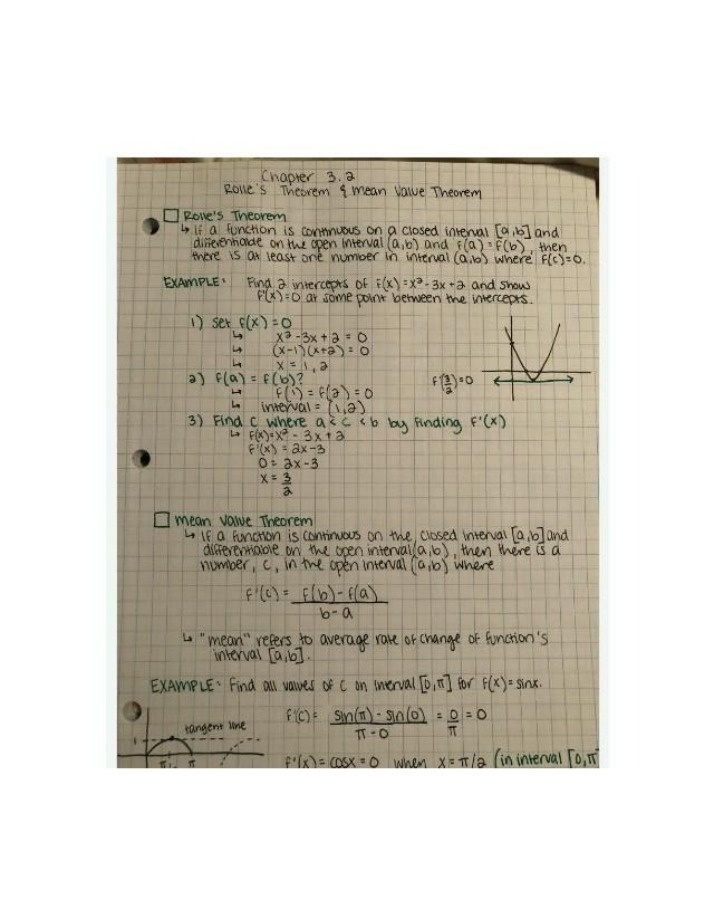 Chapter 3.2
Rolle's Theorem & Mean Value Theorem
Rolle's Theorem
↳ If a function is continuous on a closed interval [a,b] and
differentiable on the open interval (a,b) and f(a) = f(b), then
there is at least one number in interval (a,b) where f(c)=0.
EXAMPLE: Find 2 intercepts of f(x)=x²-3x+2 and show
f'(x)=0 at some point between the intercepts.
1) Set f(x)=0
↳ x²-3x+2=0
↳ (x-1)(x+2)=0
↳ x=1,2
2) f(a) = f(b)?
↳ f(1) = f(2) = 0
↳ interval = (1,2)
f'(3/2)=0
3) Find c where a < c < b by finding f'(x)
↳ f(x)=x²-3x+2
f'(x) = 2x-3
0 = 2x-3
x = 3/2
Mean Value Theorem
↳ If a function is continuous on the closed interval [a,b] and
differentiable on the open interval (a,b), then there is a
number, c, in the open interval (a,b) where
f'(c) = f(b)-f(a)
b-a
↳ "mean" refers to average rate of change of function's
interval [a,b].
EXAMPLE: Find all values of c on interval [0,π] for f(x)=sinx.
f'(c) = sin(π) - sin(0) = 0 = 0
π-0 π
tangent line
1
π
f'(x) = cosx = 0 when x = π/2 (in interval [0,π